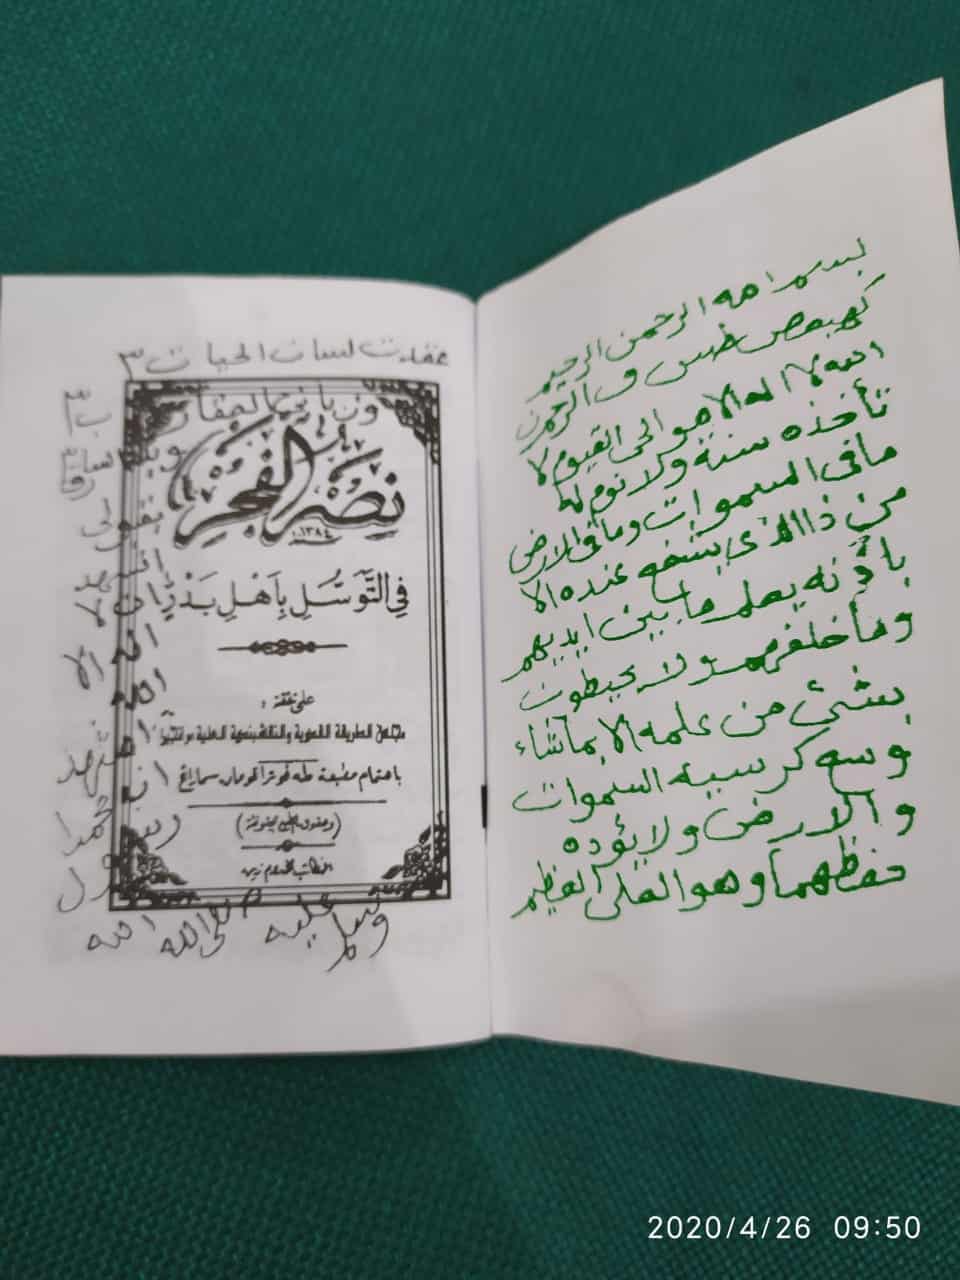 بسم الله الرحمن الرحيم
كهيعص طس ق الرحمن
الله لا اله الا هو الحى القيوم لا
تأخذه سنة ولا نوم له
مافى السموات ومافى الارض
من ذا الذى يشفع عنده الا
باذنه يعلم ما بين ايديهم
وما خلفهم ولا يحيطون
بشئ من علمه الا بماشاء
وسع كرسيه السموات
والارض ولا يؤده
حفظهما وهو العلى العظيم
عقدت لسان الحيات ٣
نصر الفجر
١٣٨٤
فى التوسل بأهل بدر
على نفقة :
باهتمام مطبعة طه فوترا سمارانج
يقولى
اشهد
ان لا
اله الا
الله
اشهد
ان محمدا
رسول
الله صلى الله عليه وسلم
2020/4/26 09:50